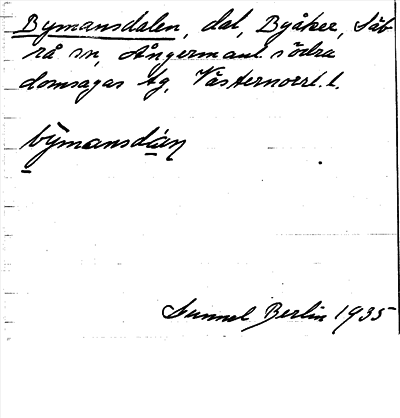 Bymansdalen, dal, Byåker, Säb-
rå sn, Ångermanl. södra
domsagas tg, Västernorrl. l.
bỳmansdàn
Gunnel Berlin 1935